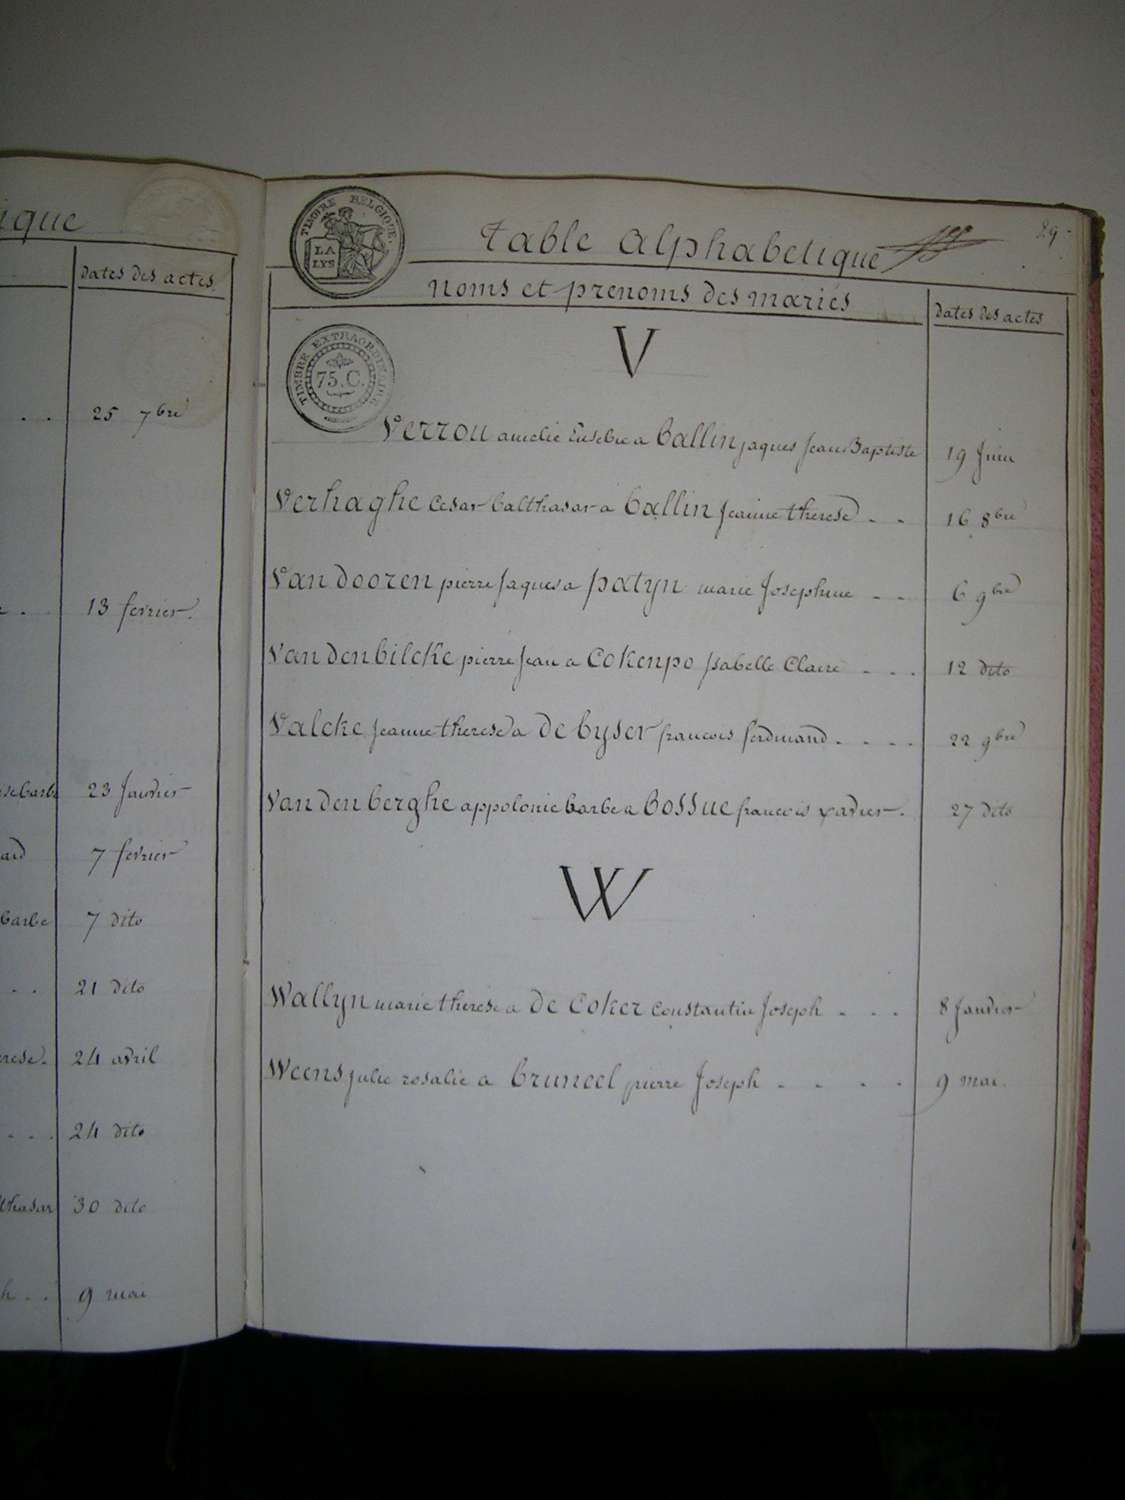 ique
dates des actes
25 7bre
13 fevrier.
23 Janvier
7 fevrier
barbe 7 dito
21 dito
24 avril
24 dito
thasar 30 dito
9 mai
TIMBRE BELGIQUE.
LA
LYS
table alphabetique
29.
noms et prenoms des mariés
dates des actes
TIMBRE EXTRAORDINAIRE
75.C.
V
Verrou amelie Eusebie a ballin jaques Jean Baptiste 19 Juin
Verhaghe Cesar balthasar a ballin Jeanne therese . . 16 8bre
Van dooren pierre Jaques a patyn marie Josephine . . 6 9bre
Van den bilcke pierre Jean a Cokenpo Isabelle Claire . . . 12 dito
Valcke Jeanne therese a De byser francois ferdinand . . . . 22 9bre
Van den berghe appolonie barbe a bossue francois xavier . 27 dito
W
Wallyn marie therese a De Coker Constantin Joseph . . . 8 Janvier
Weens julie rosalie a bruneel pierre Joseph . . . . 9 mai.